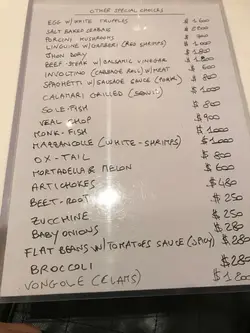 OTHER SPECIAL CHOICES
EGG W/ WHITE TRUFFLES $1600
SALT BAKED SEABASS $2600
PORCINI MUSHROOMS $900
LINGUINE W/ GAMBERI (RED SHRIMPS) $1000
JHON DORY $1800
BEEF STEAK W/ BALSAMIC VINEGAR $1200
INVOLTINO (CABBAGE ROLL) W/ MEAT $600
SPAGHETTI W/ SAUSAGE SAUCE (PORK) $800
CALAMARI GRILLED (SQUID) $1000
SOLE-FISH $800
VEAL CHOP $900
MONK-FISH $1000
MAZZANCOLLE (WHITE-SHRIMPS) $1000
OX-TAIL $800
MORTADELLA & MELON $600
ARTICHOKES $480
BEET-ROOT $250
ZUCCHINE $250
BABY ONIONS $280
FLAT BEANS W/ TOMATOES SAUCE (SPICY) $280
BROCCOLI $280
VONGOLE (CLAMS) $1200